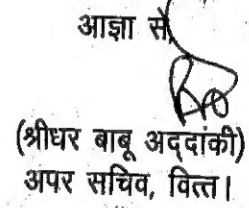 आज्ञा से,
(श्रीधर बाबू अद्दांकी)
अपर सचिव, वित्त।